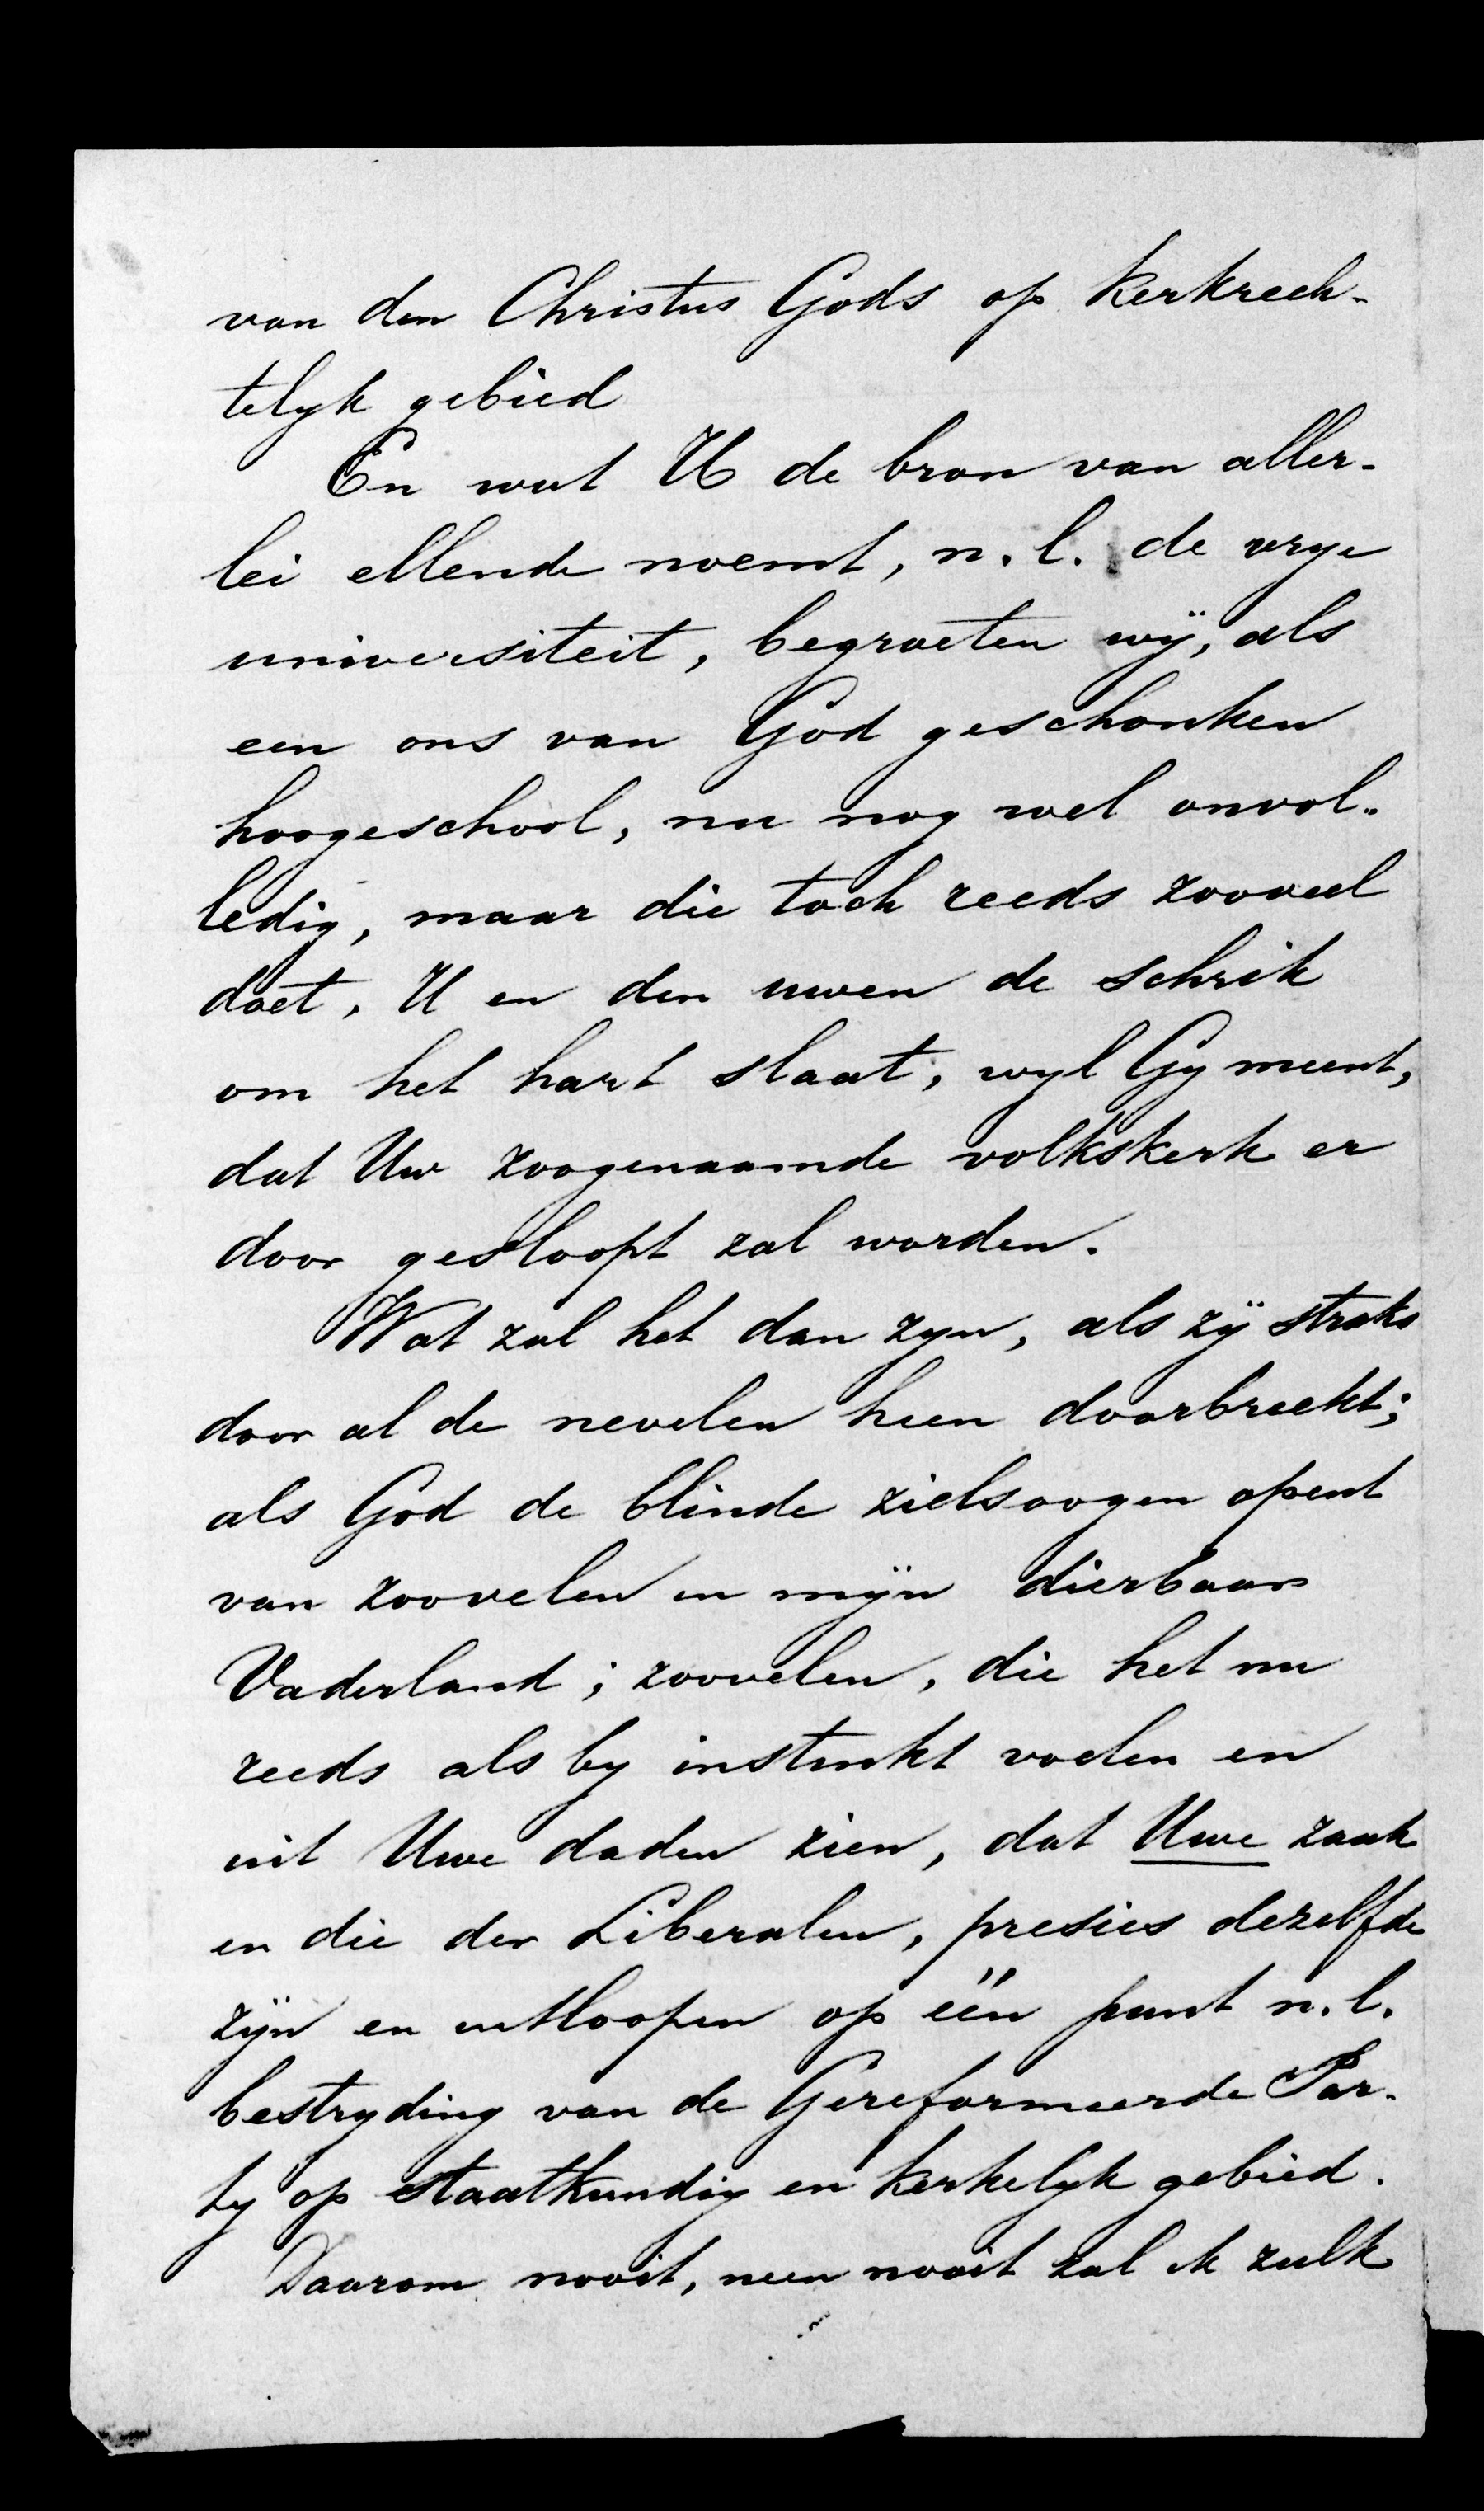 van den Christus Gods op kerkrech-
telyk gebied
En wat U de bron van aller-
lei ellende noemt, n.l. de vrye
universiteit, begroeten wÿ, als
een ons van God geschonken
hoogeschool, nu nog wel onvol-
ledig, maar die toch reeds zooveel
doet, U en den uwen de schrik
om het hart slaat, wyl Gy meent,
dat Uw zoogenaamde volkskerk er
door gesloopt zal worden.
Wat zal het dan zyn, als zÿ straks
door al de nevelen heen doorbreekt;
als God de blinde zielsoogen opent
van zoovelen in mÿn dierbaar
Vaderland; zoovelen, die het nu
reeds als by instinkt voelen en
uit Uwe daden zien, dat Uwe zaak
en die der Liberalen, presies dezelfde
zÿn en uitloopen op één punt n.l.
bestryding van de Gereformeerde Par-
ty op staatkundig en kerkelyk gebied.
Daarom nooit, neen nooit zal ik zulk